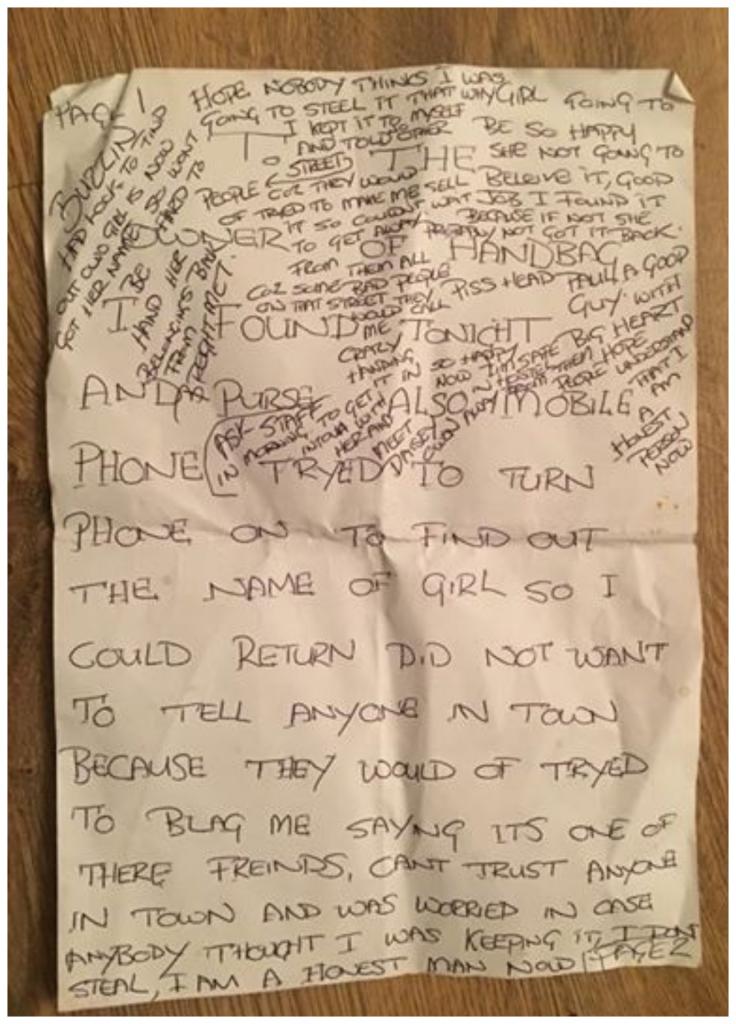 PAGE 1
HOPE NOBODY THINKS I WAS
GOING TO STEEL IT THAT WHY
I KEPT IT TO MYSELF
AND TOLD OTHER
STREET
PEOPLE COZ THEY WOULD
OF TRIED TO MAKE ME SELL
IT SO COULDN'T WAIT
TO GET AWAY
FROM THEM ALL
COZ SOME BAD PEOPLE
ON THAT STREET THEY
WOULD CALL
ME
CRAZY
HANDING
IT IN
GIRL GOING TO
BE SO HAPPY
SHE NOT GOING TO
BELEIVE IT, GOOD
JOB I FOUND IT
BECAUSE IF NOT SHE
PROBABLY NOT GOT IT BACK.
PISS HEAD PAUL A GOOD
GUY WITH
BIG HEART
SO HAPPY
NOW I'M SAFE
IN HOSTEL THEM HOPE
AWAY FROM PEOPLE UNDERSTAND
THAT I
AM
A
HONEST
PERSON
NOW
BUZZIN
HAD LOOK TO FIND
OUT OWO GIRL IS NOW
GOT HER NAME SO WONT
BE HARD TO
HAND HER
BELONGINGS BACK
FROM
PROJECT MCT.
ASK STAFF
IN MORNING TO GET
INTOUH WITH
HER AND
MEET
DAISEY
TO THE
OWNER OF HANDBAG
I FOUND TONIGHT
AND PURSE ALSO MOBILE
PHONE TRYED TO TURN
PHONE ON TO FIND OUT
THE NAME OF GIRL SO I
COULD RETURN DID NOT WANT
TO TELL ANYONE IN TOWN
BECAUSE THEY WOULD OF TRYED
TO BLAG ME SAYNG ITS ONE OF
THERE FREINDS, CANT TRUST ANYONE
IN TOWN AND WAS WORRIED IN CASE
ANYBODY THOUGHT I WAS KEEPING IT, I DONT
STEAL, I AM A HONEST MAN NOW PAGE 2